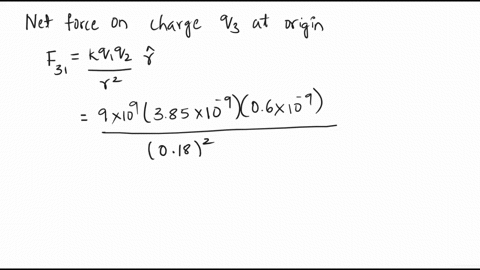 Net force on charge q3 at origin
F31 = kq1q2 / r² r̂
= 9×10⁹ (3.85×10⁻⁹)(0.6×10⁻⁹)
(0.18)²